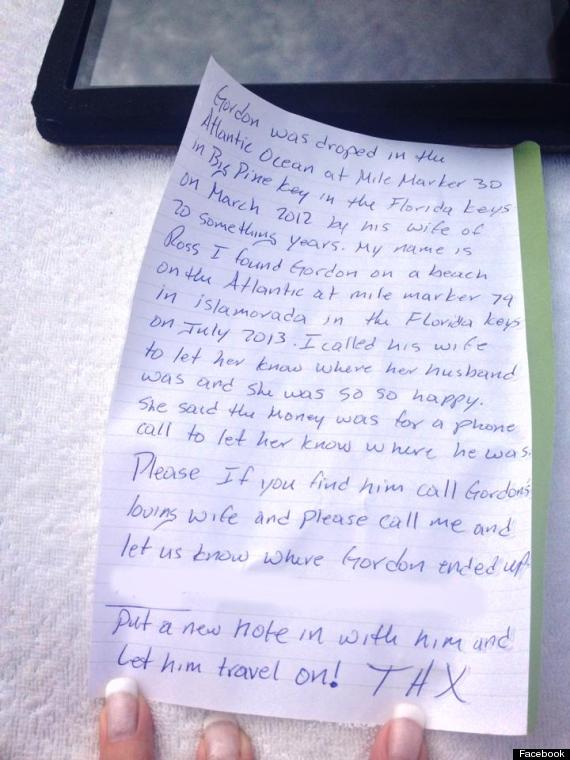 Gordon was droped in the
Atlantic Ocean at Mile Marker 30
in Big Pine Key in the Florida Keys
on March 2012 by his wife of
20 something years. My name is
Ross I found Gordon on a beach
on the Atlantic at mile marker 79
in islamorada in the Florida Keys
on July 2013. I called his wife
to let her know where her husband
was and she was so so happy.
She said the Money was for a phone
call to let her know where he was.
Please If you find him call Gordon's
loving wife and please call me and
let us know where Gordon ended up.
Put a new note in with him and
Let him travel on! THX
Facebook